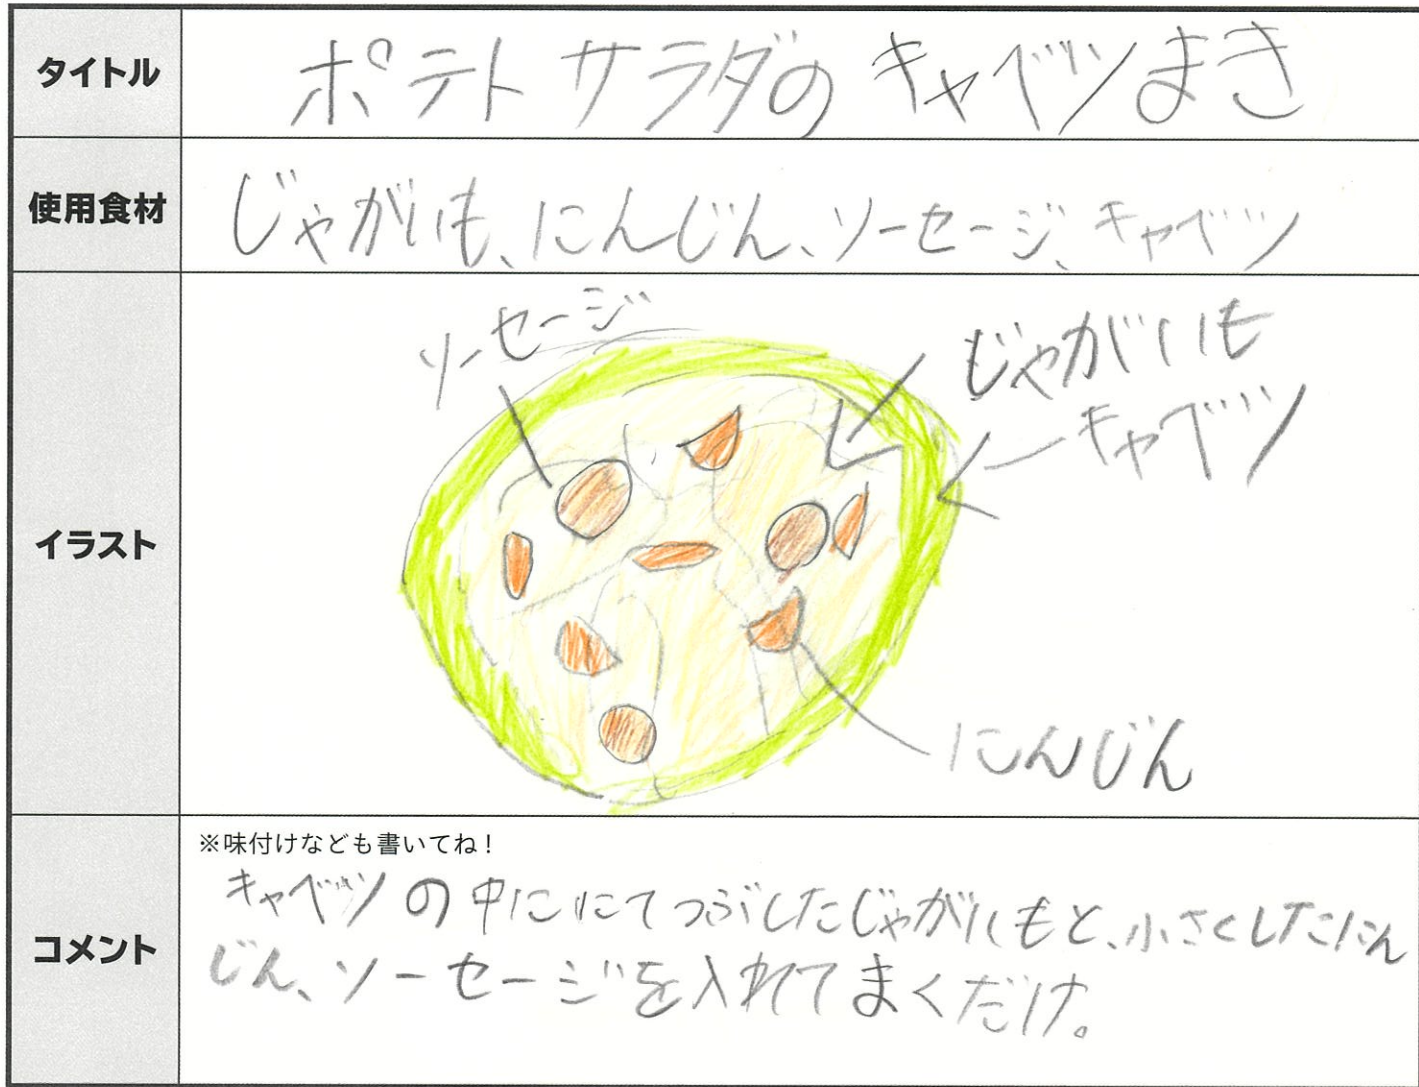 タイトル
ポテトサラダのキャベツまき
使用食材
じゃがいも、にんじん、ソーセージ、キャベツ
イラスト
ソーセージ
じゃがいも
キャベツ
にんじん
コメント
※味付けなども書いてね！
キャベツの中ににてつぶしたじゃがいもと、小さくしたにん
じん、ソーセージを入れてまくだけ。